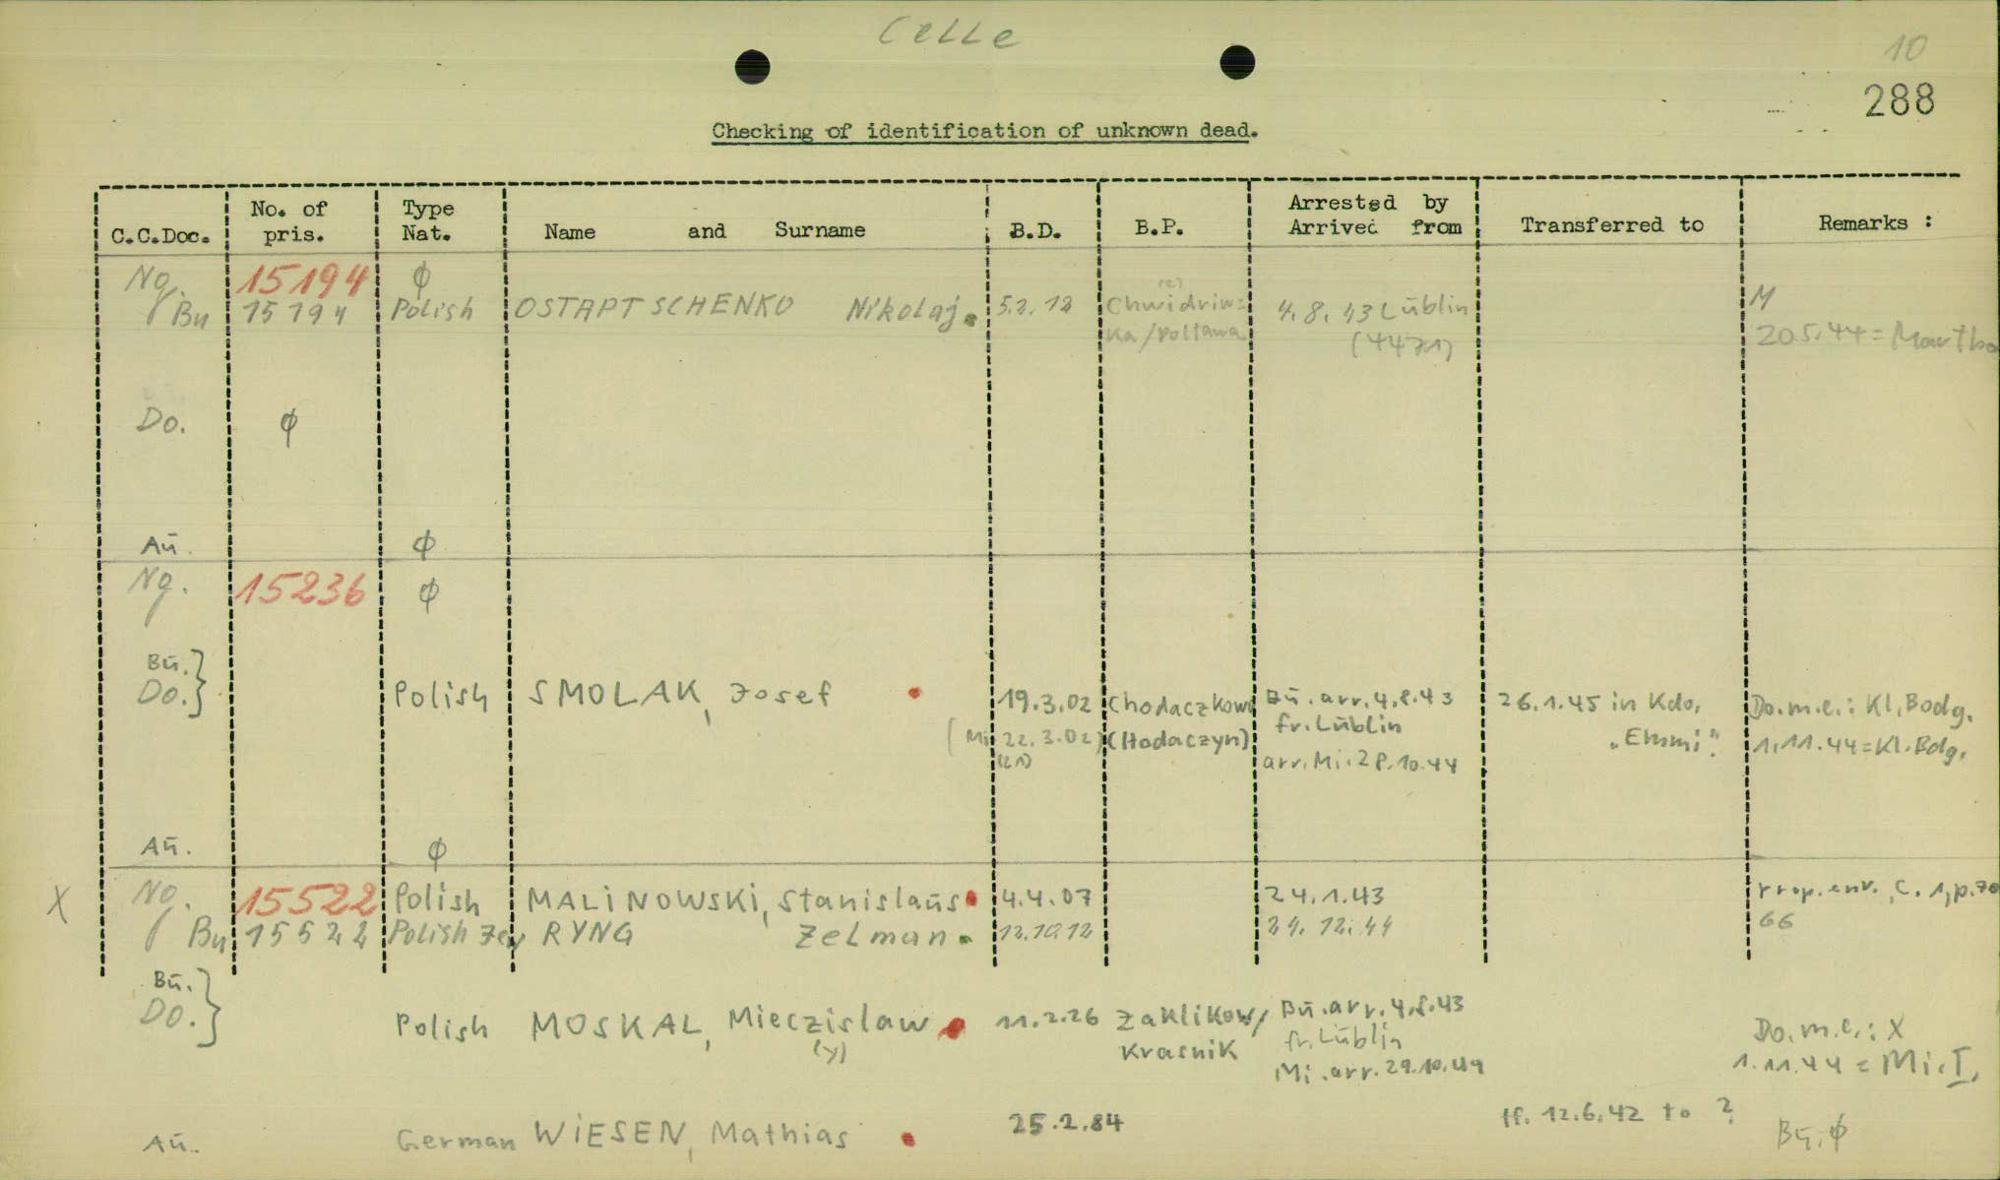 Celle
10
288
Checking of identification of unknown dead.
C.C.Doc. No. of pris. Type Nat. Name and Surname B.D. B.P. Arrested by Arrived from Transferred to Remarks :
Ng. 15194 ϕ
Bu 15194 Polish OSTAPTSCHENKO Nikolaj. 5.2.12 4.8.43 Lūblin M
Ka/Poltawa (4471) 20.5.44 = Martha
Do. ϕ
Aū. ϕ
Ng. 15236 ϕ
Bū. }
Do. } Polish SMOLAK, Josef 19.3.02 Chodaczkow Bū. arr. 4.8.43 26.1.45 in Kdo. Do.m.e.: Kl. Bodg.
fr. Lūblin
(Mi 22.3.02) (Hodaczyn) „Emmi". 1.11.44 = Kl. Bdg.
arr. Mi. 28.10.44
Aū. ϕ
X No. 15522 Polish MALiNOWSKi, Stanislaūs 4.4.07 24.1.43 Prop. env., C. 1, p. 70
Bu 15522 Polish RYNG Zelman. 12.10.12 24.12.44 66
Bū. }
Do. } Polish MOSKAL, Mieczislaw 11.2.26 Zaklikow/ Bū. arr. 4.8.43 Do.m.e.: X
(y) Krasnik fr. Lūblin
Mi. arr. 29.10.44 1.11.44 = Mi. I.
Aū. German WiESEN, Mathias 25.2.84 12.6.42 to ? Bū. ϕ